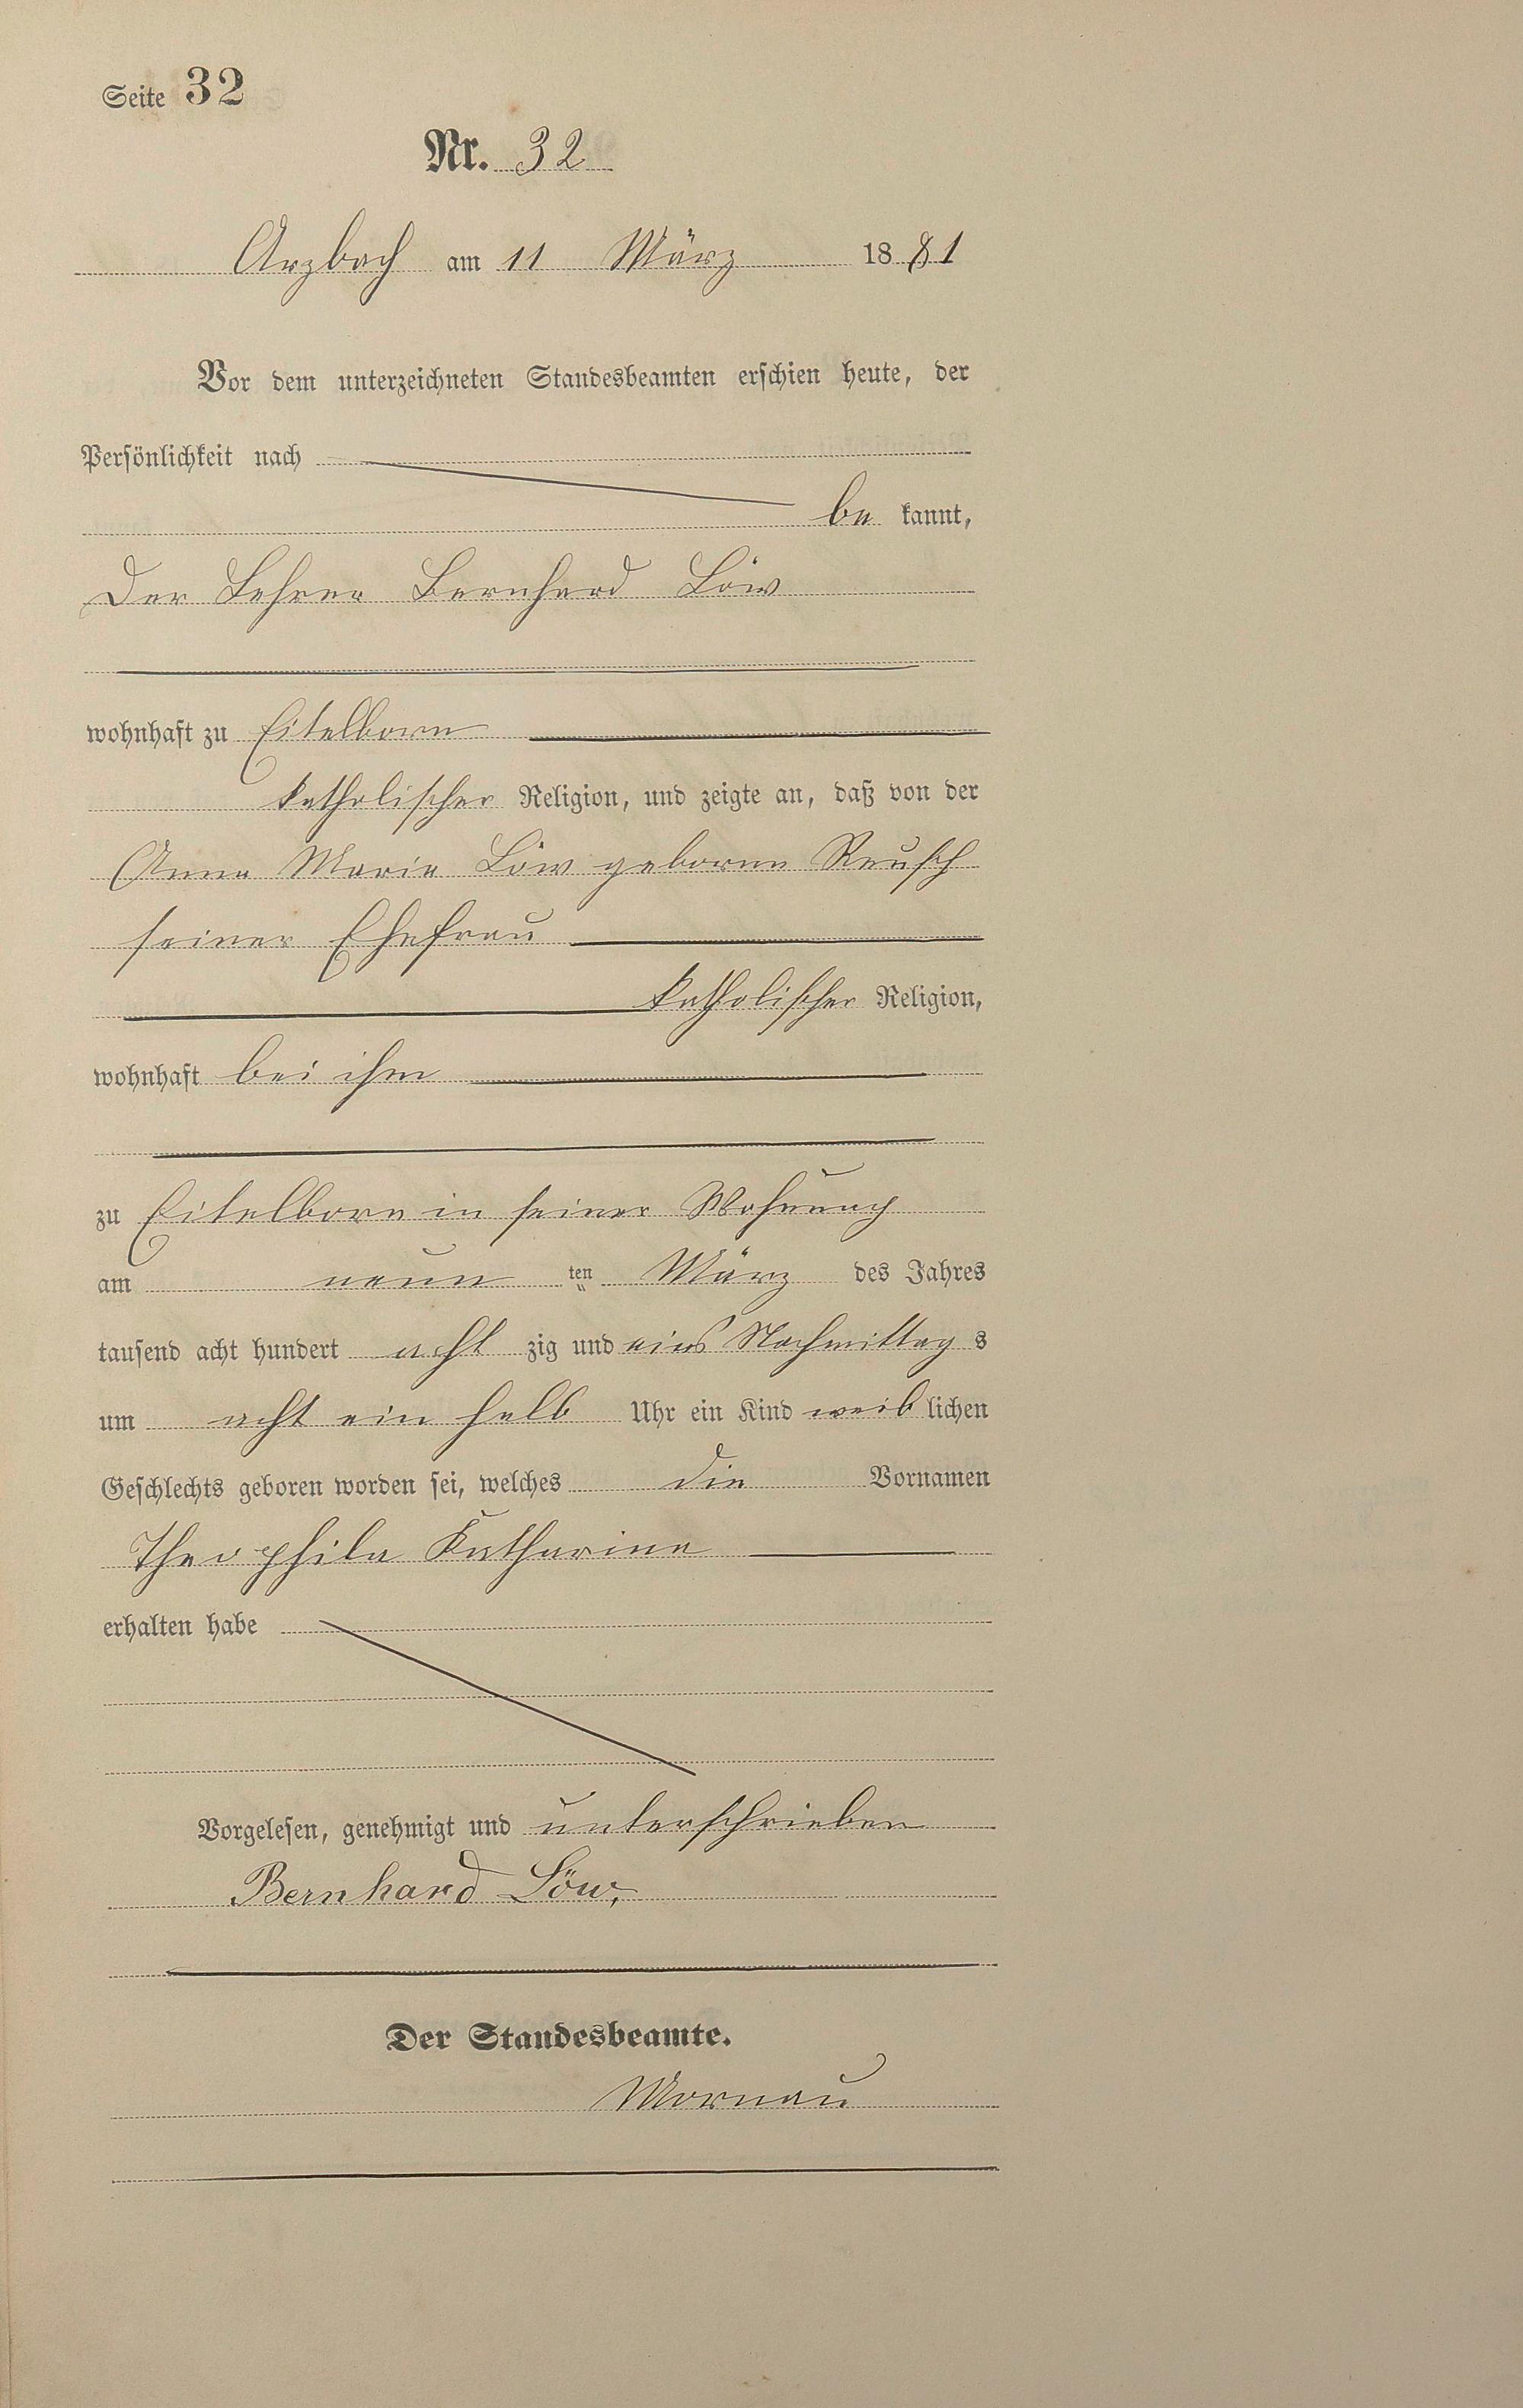 Seite 32
Nr. 32
Arzbach am 11 März 1881
Vor dem unterzeichneten Standesbeamten erschien heute, der
Persönlichkeit nach
be kannt,
Der Lehrer Bernhard Löw
wohnhaft zu Eitelborn
katholischer Religion, und zeigte an, daß von der
Anna Maria Löw geborne Reusch
seiner Ehefrau
katholischer Religion,
wohnhaft bei ihm
zu Eitelborn in seiner Wohnung
am neun ten März des Jahres
tausend acht hundert acht zig und eins Nachmittag s
um acht ein halb Uhr ein Kind weib lichen
Geschlechts geboren worden sei, welches die Vornamen
Theophila Katharina
erhalten habe
Vorgelesen, genehmigt und unterschrieben
Bernhard Löw,
Der Standesbeamte.
Mornau